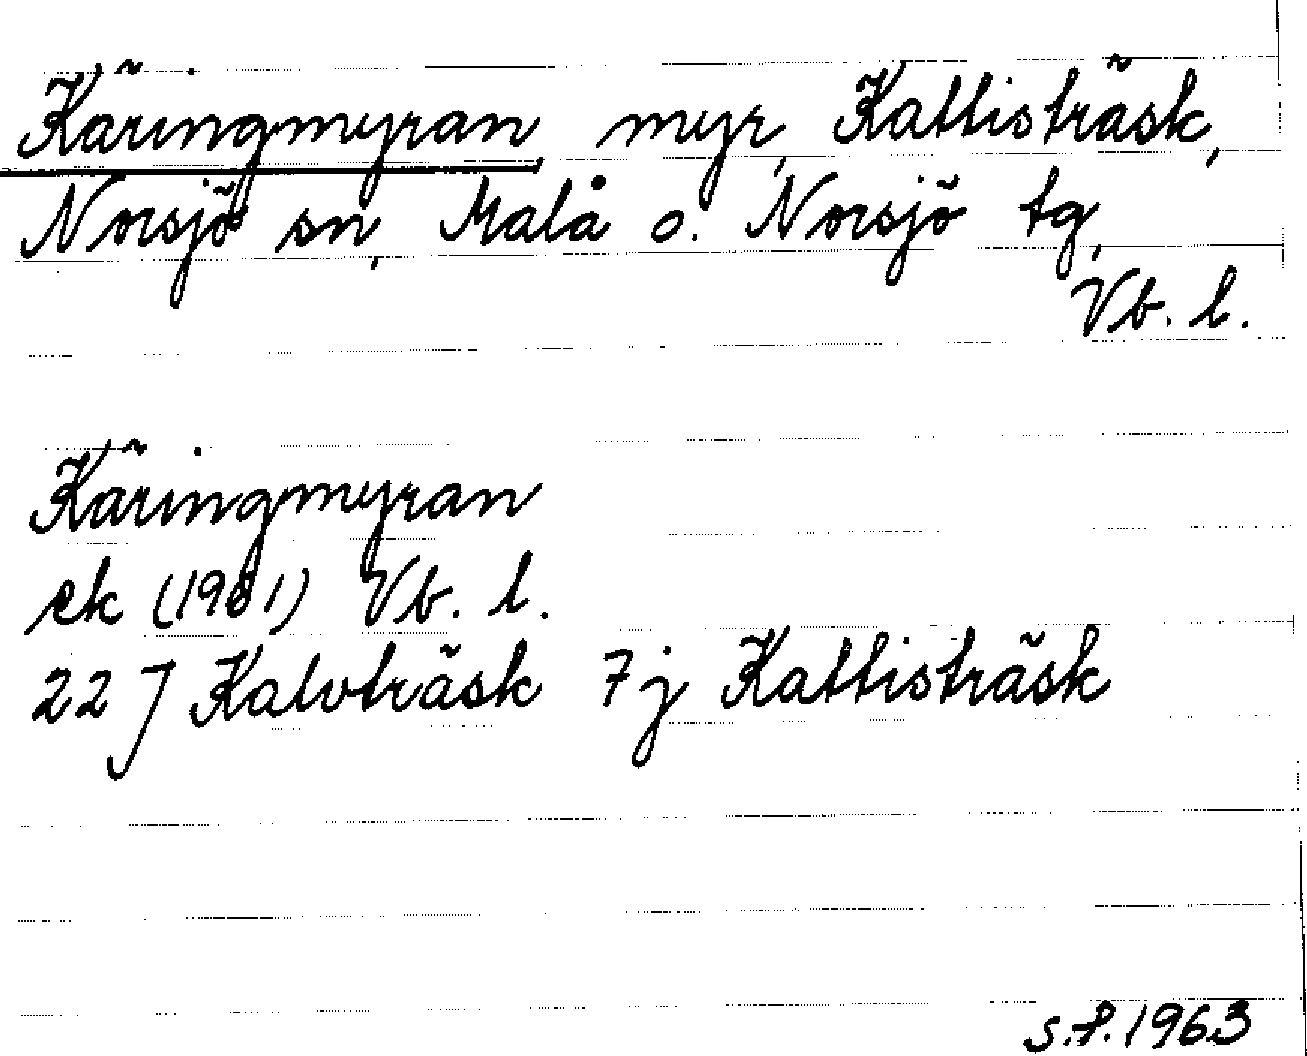 Käringmyran, myr, Kattisträsk,
Norsjö sn, Malå o. Norsjö tg,
Vb. l.
Käringmyran
ek (1961) Vb. l.
22 J Kalvträsk 7j Kattisträsk
s.f. 1963